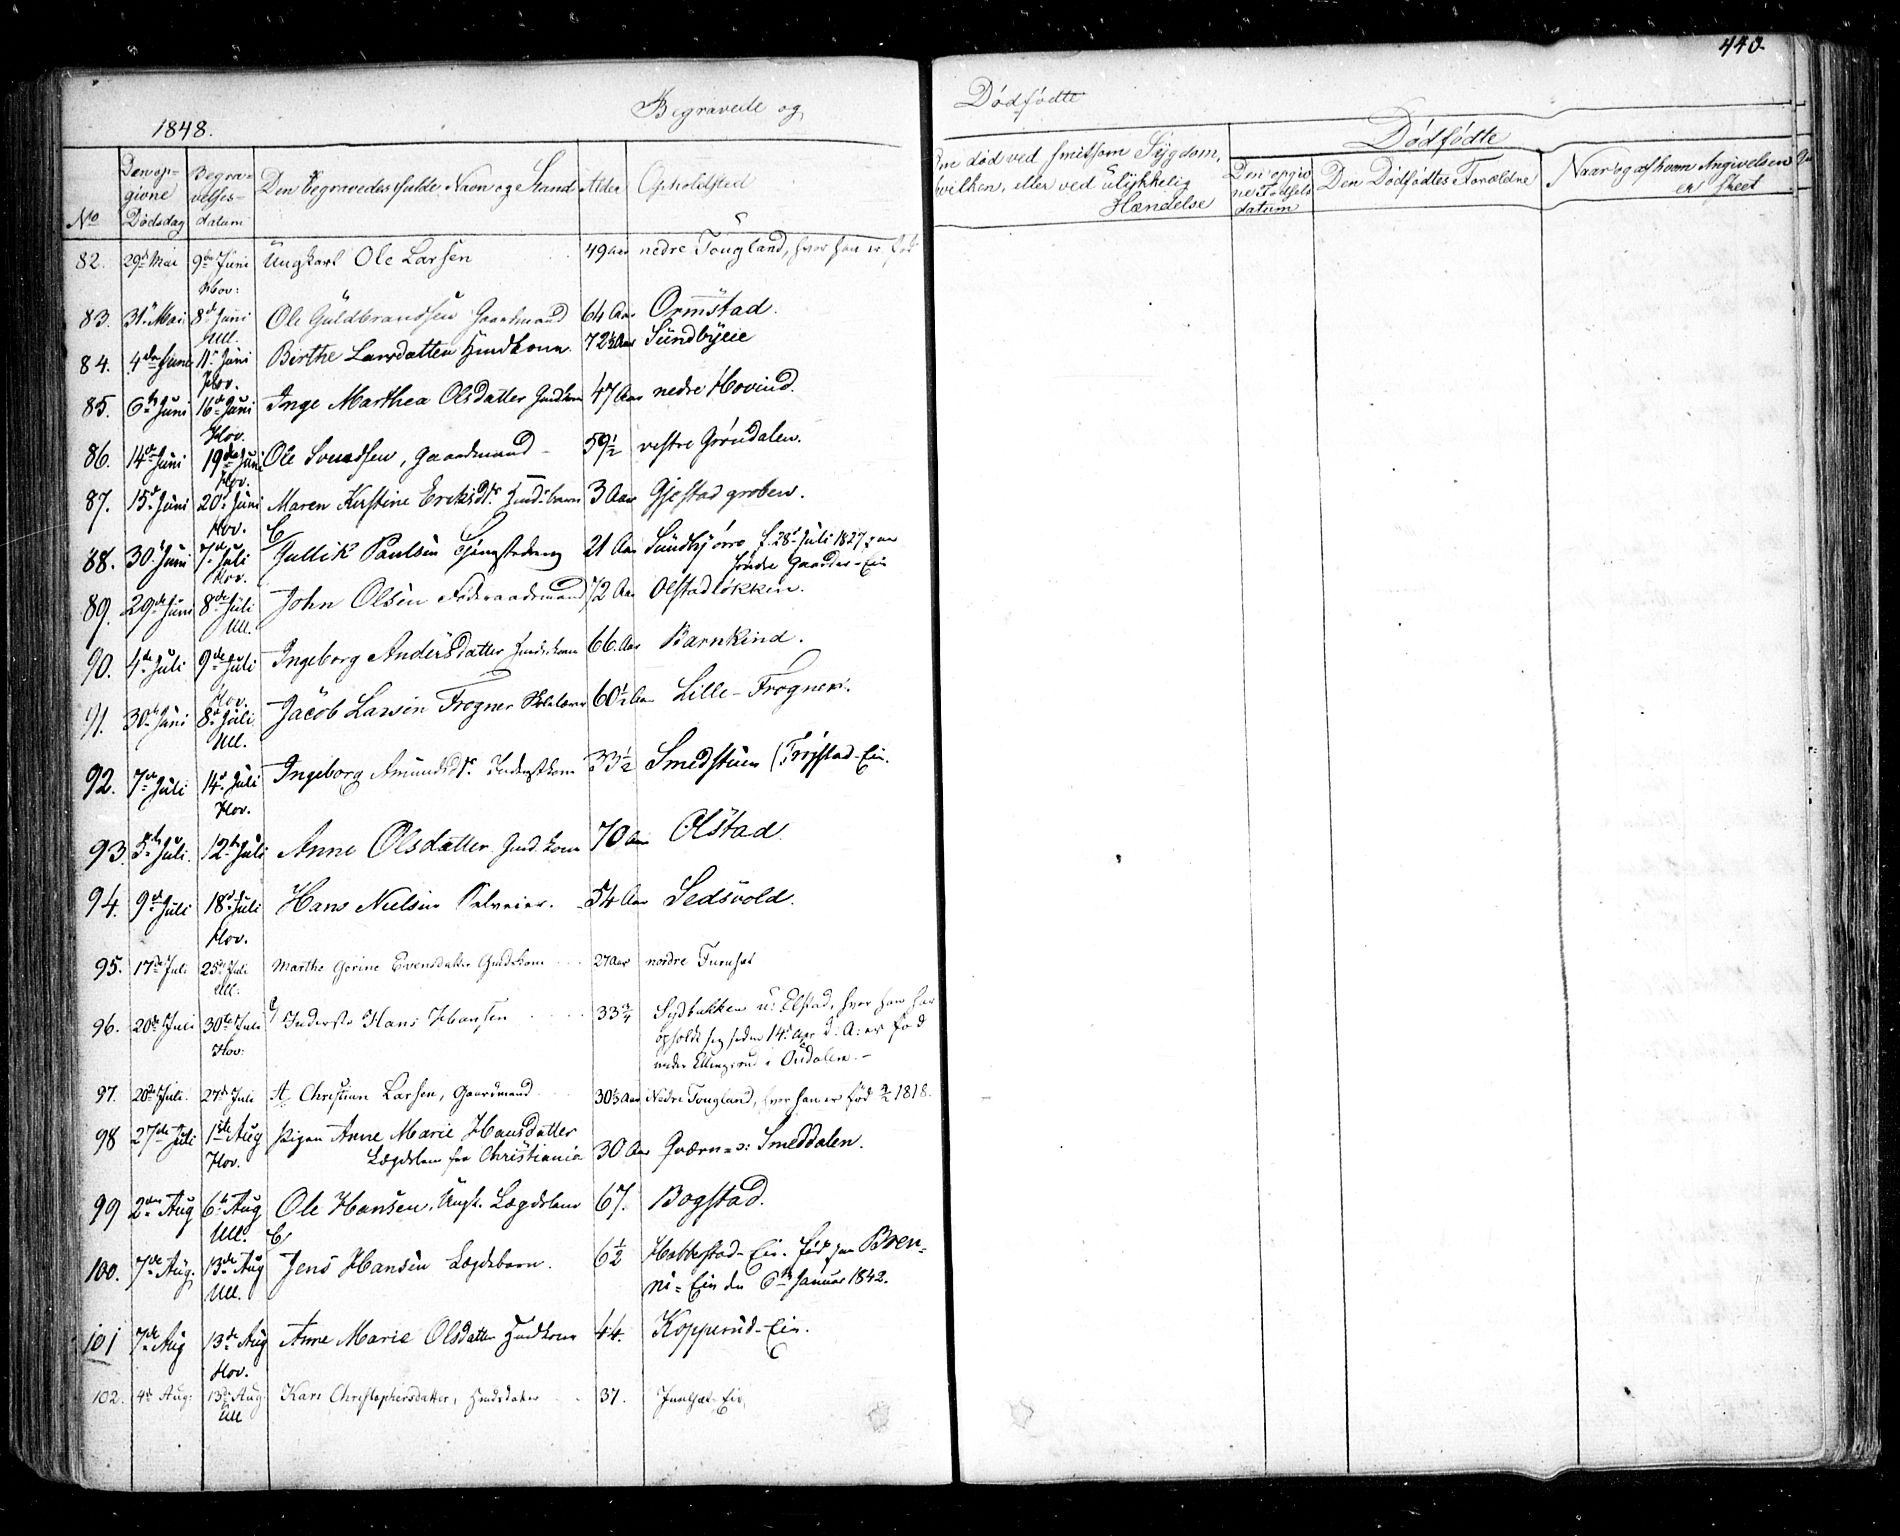 440.
Begravede og
Dødfødte
1848.
No
Den opgivne Dødsdag
Begravelsesdatum
Den Begravedes fulde Navn og Stand
Alder
Opholdsted
død ved smitsom Sygdom,
hvilken, eller ved ulykkelig
Hændelse
Dødfødte
Den opgivne Fødselsdatum
Den Dødfødtes Forældre
Naar og af hvem Angivelsen er skeet
82. 29de Mai 9de Juni Ungkarl Ole Larsen 49 Aar nedre Tougland, hvor han er fød
Hov:
83. 31te Mai 8de Juni Ole Guldbrandsen Gaardmand 64 Aar Ormstad.
Ull.
84. 4de Juni 11te Juni Birthe Larsdatter Huuskone 72½ Aar Sundbyeie
Hov.
85. 6te Juni 16de Juni Inge Marthea Olsdatter 47 Aar nedre Hovind.
Hov.
86. 14de Juni 19de Juni Ole Svendsen, Gaardmand 59½ vestre Grøndalen.
Hov.
87. 15de Juni 20de Juni Maren Kirstine Eriksdtr. 3 Aar Gjestadgroben.
Hov.
88. 30te Juni 7de Juli Gullik Paulsen 21 Aar Sundby f. 28de Juli 1827
Hov.
89. 29de Juni 8de Juli John Olsen Føderaadsmand 72 Aar Olstadløkken.
Ull.
90. 4de Juli 9de Juli Ingeborg Andersdatter 66 Aar Barnkind.
Hov.
91. 30te Juni 8de Juli Jacob Larsen Frogner 60½ Aar Lille-Frogner.
Ull.
92. 7de Juli 14de Juli Ingeborg Amundsdtr. Inderstkone 33½ Smedstuen (Trøgstad-Eie.
Hov.
93. 5te Juli 12te Juli Anne Olsdatter 70 Aar Olstad.
94. 9de Juli 18de Juli Hans Nielsen Selveier. 54 Aar Sedsvold.
Hov.
95. 17de Juli 25de Juli Marthe Gorine Evensdatter 27 Aar nordre Furuset
Ull.
96. 20de Juli 30te Juli Inderste Hans Johansen 33¾ u: Elstad, hvor han har
Hov: opholdt sig siden 14de Apr d: A: er fød
under Ellingsrud i Oudalen.
97. 20de Juli 27de Juli Christian Larsen, Gaardmand 30⅓ Aar Nedre Tougland, hvor han er fød 1818.
98 27de Juli 1ste Aug Pigen Anne Marie Hansdatter
Hov. Lægdslem fra Christiania 30 Aar Qværn u: Smeddalen.
99 2den Aug 6te Aug Ole Hansen, Ungk. Lægdslem 67. Bogstad.
Ull.
100. 7de Aug. 13de Aug Jens Hansen Lægdsbarn. 6½ Habbestad-Eie. fød paa Bren=
Ull. ni=Eie den 6te Januar 1842.
101 7de Aug 13de Aug Anne Marie Olsdatter Huuskone 44. Kopperud-Eie.
Hov.
102. 4de Aug. 13de Aug. Kari Christophersdatter, 37.
Ull